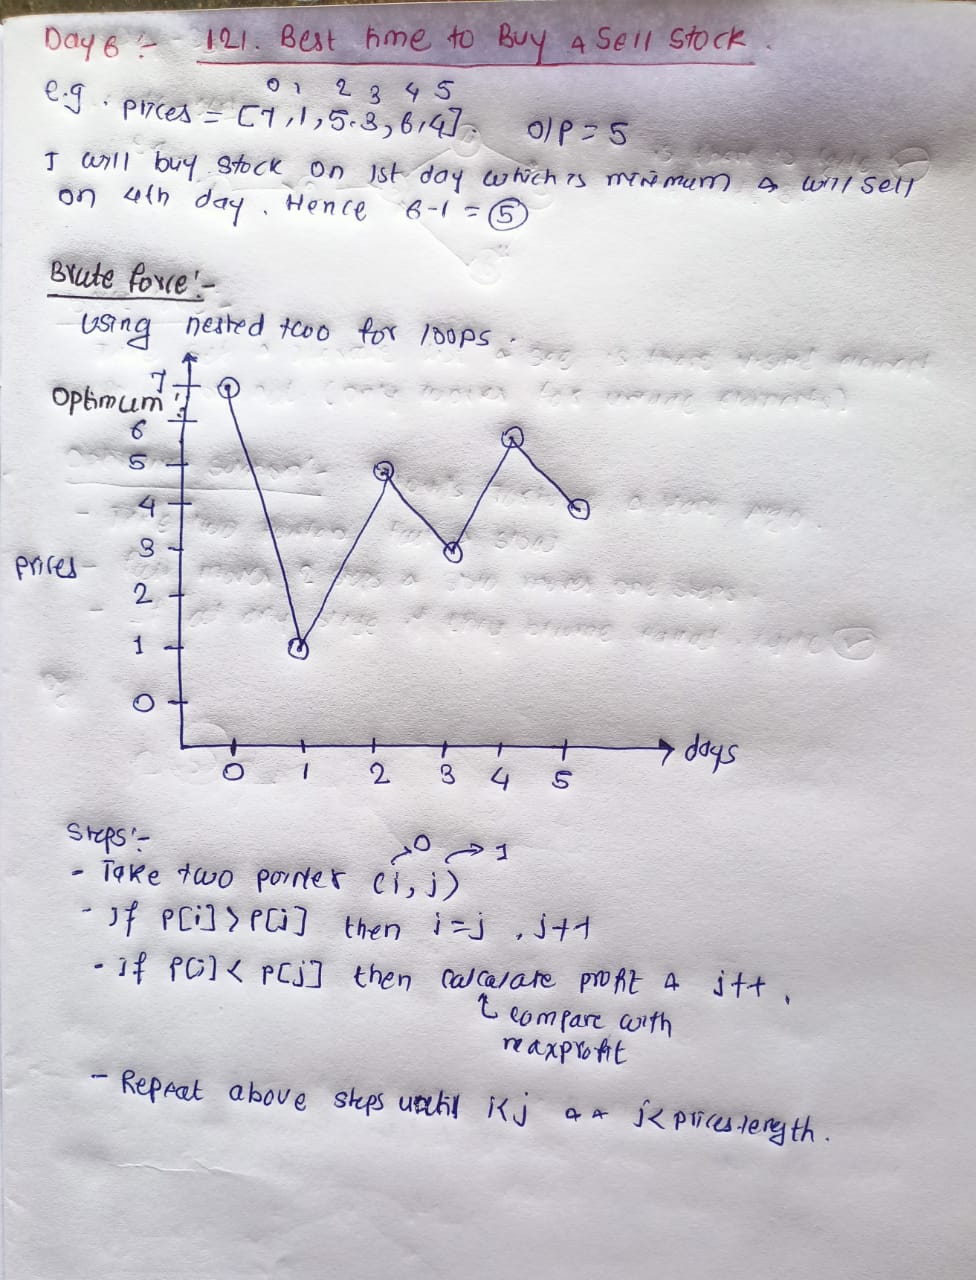 Day 6 :- 121. Best time to Buy & Sell Stock.
0 1 2 3 4 5
e.g. prices = [7,1,5,3,6,4]. O/P = 5
I will buy stock on 1st day which is minimum & will sell
on 4th day. Hence 6-1 = 5
Brute force :-
Using nested two for loops.
Optimum :-
7
6
5
4
3
2
1
0
prices
0 1 2 3 4 5
days
Steps :-
0 1
- Take two pointer (i, j)
- If P[i] > P[j] then i=j , j++
- if P[i] < P[j] then calculate profit & j++,
compare with
maxprofit
- Repeat above steps until i<j && j< prices.length.